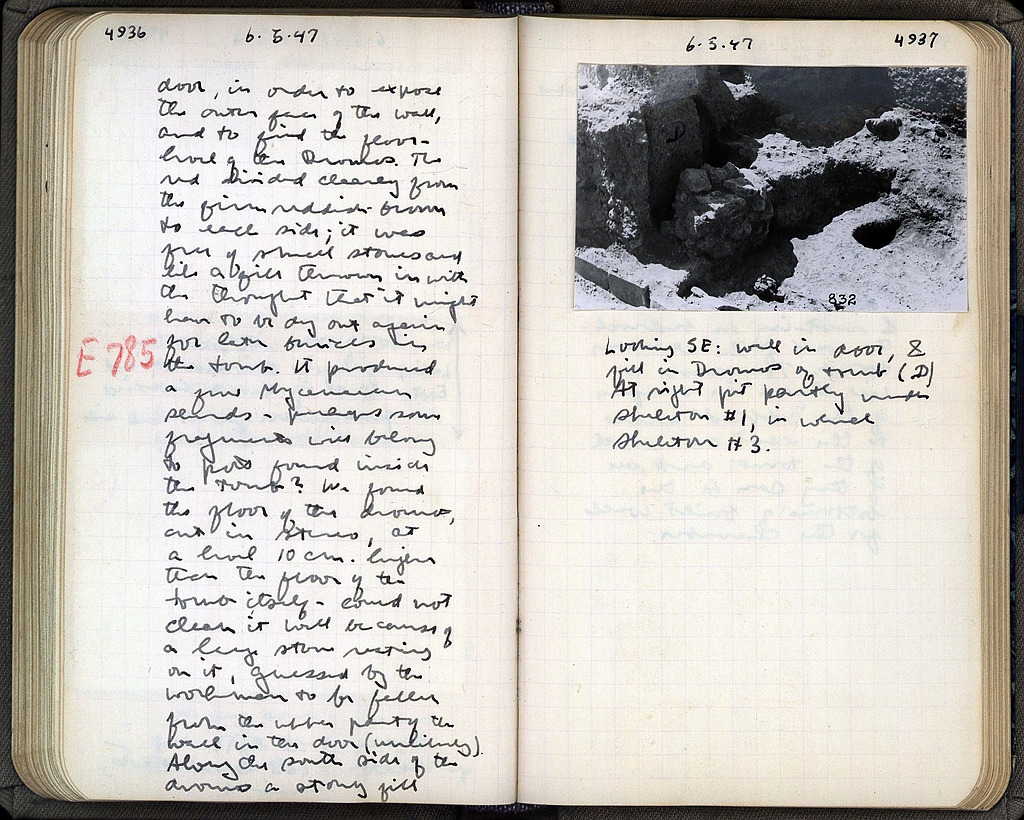 4936
6·5·47
door, in order to expose
the outer face of the wall,
and to find the floor-
level of the Dromos. The
red divided cleanly from
the firm reddish-brown
to each side; it was
full of small stones and
like a fill thrown in with
the thought that it might
have to be dug out again
for later burials in
E 785
the tomb. It produced
a few Mycenaean
sherds - perhaps some
fragments will belong
to pots found inside
the tomb? We found
the floor of the dromos,
cut in stereo, at
a level 10 cm. higher
than the floor of the
tomb itself - could not
clean it well because of
a large stone resting
on it, guessed by the
workmen to be fallen
from the upper part of the
wall in the door (unlikely).
Along the south side of the
dromos a stony fill
6·5·47
4937
832
Looking SE: wall in door, &
fill in Dromos of tomb (D)
At right pit partly under
skeleton #1, in which
skeleton #3.